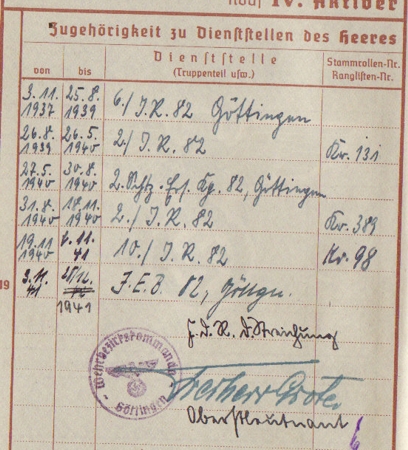 noch IV. Aktiver
Zugehörigkeit zu Dienststellen des Heeres
von bis Dienststelle (Truppenteil usw.) Stammrollen-Nr. Ranglisten-Nr.
3.11. 1937 25.8. 1939 6./ I.R. 82 Göttingen
26.8. 1939 26.5. 1940 2./ I.R. 82 Kr. 131
27.5. 1940 30.8. 1940 2. Schtz. Ers. Kp. 82, Göttingen
31.8. 1940 18.11. 1940 2./ I.R. 82 Kr. 389
19.11. 1940 2.11. 41 10./ I.R. 82 Kr. 98
19 3.11. 41 1941 I.E.B. 82, Göttgn.
F.d.R.d. Streichung
Wehrbezirkskommando Göttingen
Freiherr Grote
Oberstleutnant